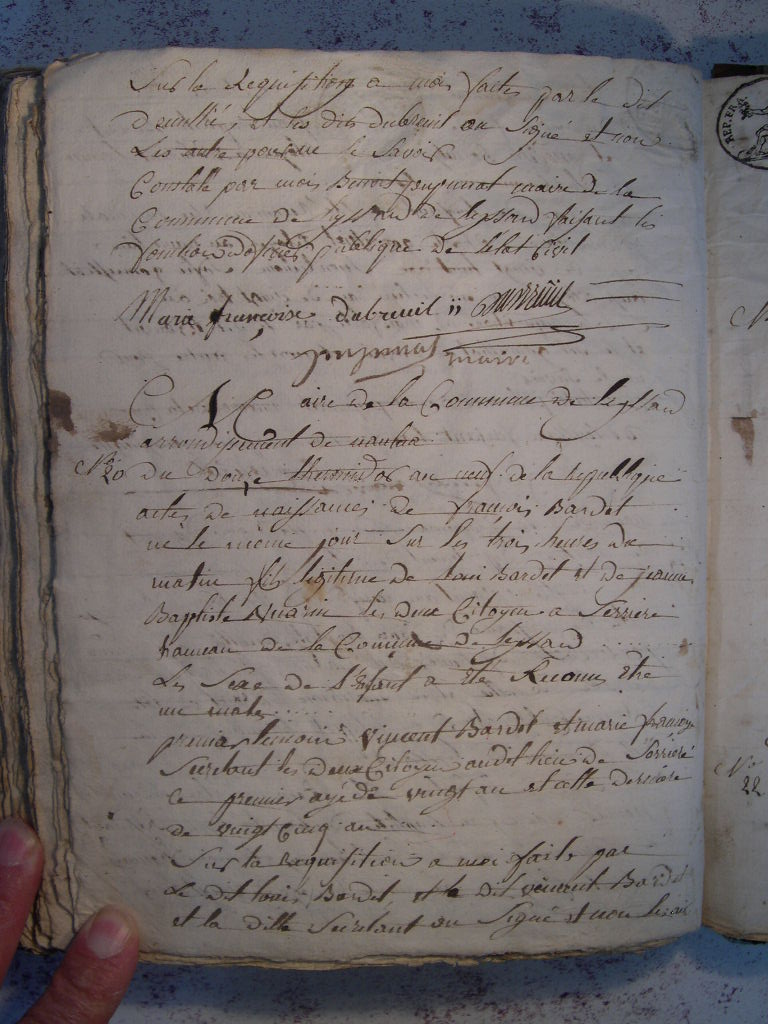 Sur la Requisition a moi faites par le dit
et les dits dubreuil on Signé et non
Les autre pour ne le Savoir
Constaté par moi Benoit maire de la
Commune de de leyssard faisant les
fonction publique de letat Civil
Maria françoise dubreuil
maire
aire de la Commune de leyssard
arrondissement de nantua
N° 20 du douze thermidor an neuf de la republique
actes de naissances de françois Bardet
né le meme jour Sur les trois heures du
matin fils legitime de loui Bardet et de jeanne
Baptiste les deux Citoyen a Serriere
hameau de la Commune de leyssard
Le Sexe de l'Enfant a été Reconu etre
un male
premier temoins Vincent Bardet et marie françoise
les deux Citoyen audit lieu de Serriere
Ce premier agé de vingt an et cette derniere
de vingt Cinq an
Sur la Requisition a moi faite par
Le dit louis Bardet, et le dit vincent Bardet
et la ditte on Signé et non
REP. FR
N° 22